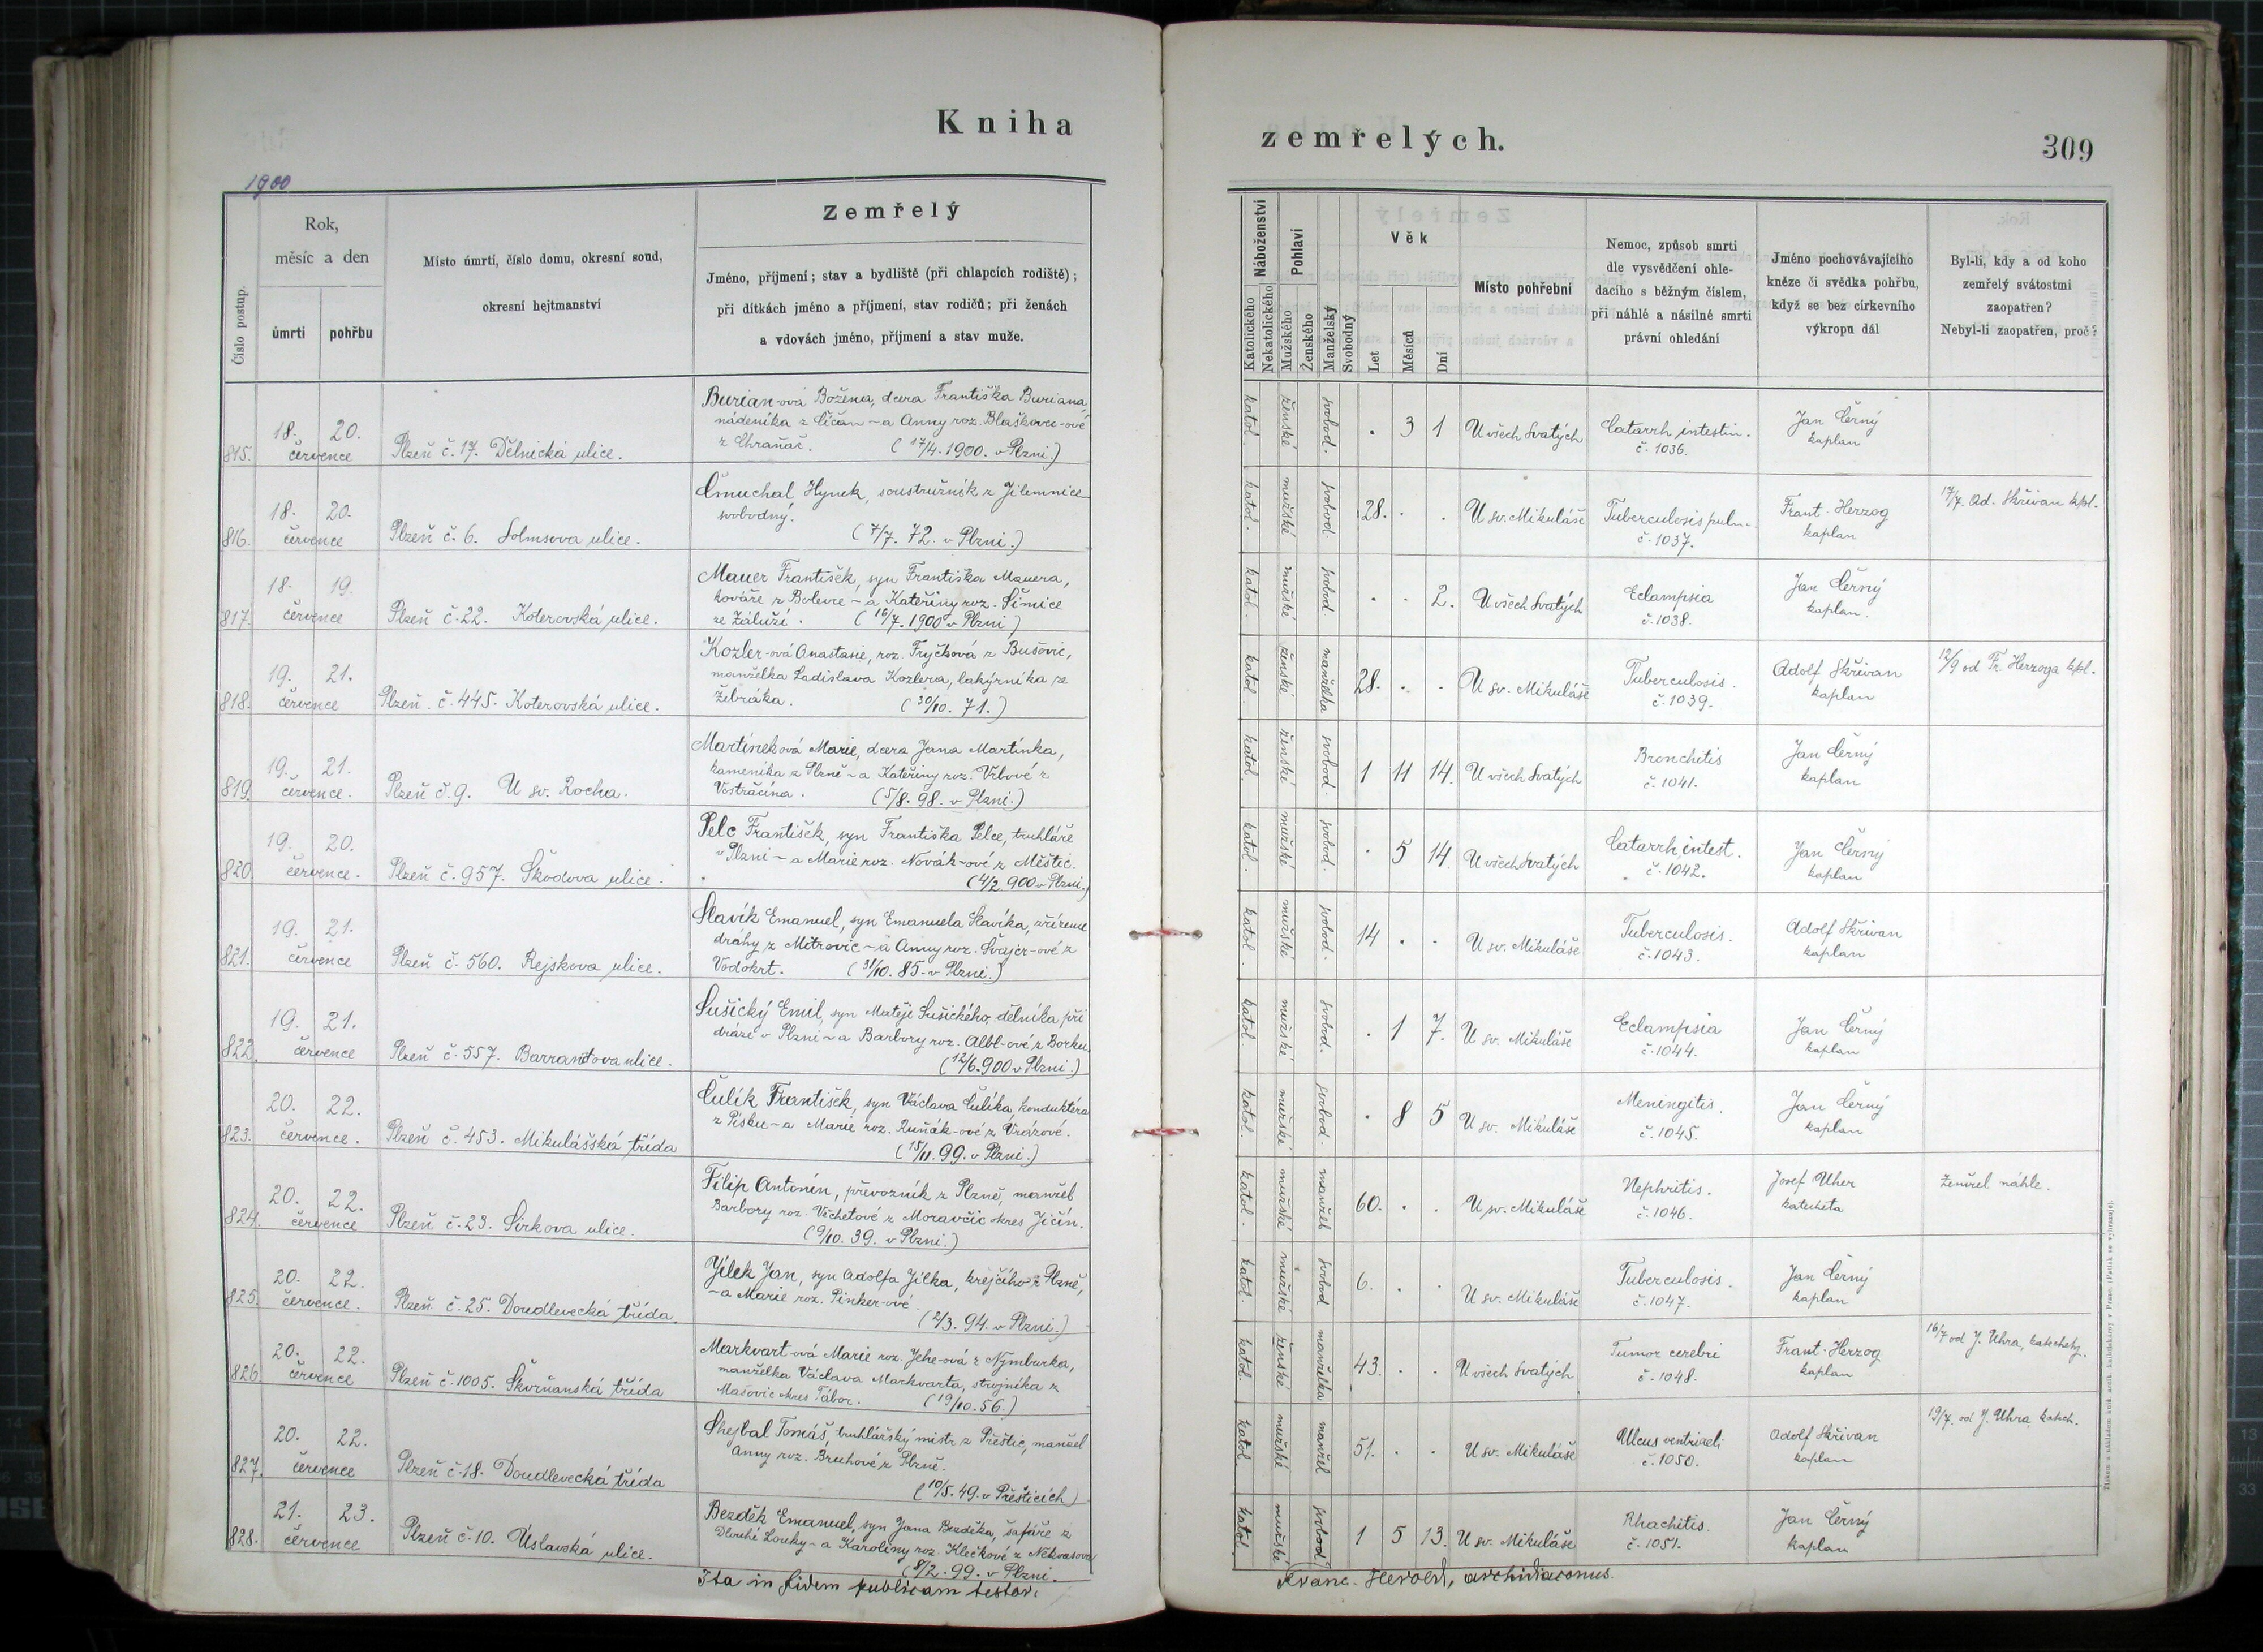 Kniha
zemřelých.
309
1900
Číslo postup.
Rok,
měsíc a den
úmrtí
pohřbu
Místo úmrtí, číslo domu, okresní soud,
okresní hejtmanství
Zemřelý
Jméno, příjmení; stav a bydliště (při chlapcích rodiště);
při dítkách jméno a příjmení, stav rodičů; při ženách
a vdovách jméno, příjmení a stav muže.
Náboženství
Katolického
Nekatolického
Pohlaví
Mužského
Ženského
Manželský
Svobodný
Věk
Let
Měsíců
Dní
Místo pohřební
Nemoc, způsob smrti
dle vysvědčení ohle-
dacího s běžným číslem,
při náhlé a násilné smrti
právní ohledání
Jméno pochovávajícího
kněze či svědka pohřbu,
když se bez církevního
výkropu dál
Byl-li, kdy a od koho
zemřelý svátostmi
zaopatřen?
Nebyl-li zaopatřen, proč?
815. 18. 20. července Plzeň č. 17. Dělnická ulice.
Burian-ová Božena, dcera Františka Buriana,
nádeníka z Číčan – a Anny roz. Blaškovic-ové
z Chraňač. (17/4. 1900. v Plzni.)
katol. ženské svobod. . 3 1 U všech Svatých Catarrh intestin. č. 1036. Jan Černý kaplan
816. 18. 20. července Plzeň č. 6. Solmsova ulice.
Čmuchal Hynek, soustružník z Jilemnice
svobodný.
(7/7. 72. v Plzni.)
katol. mužské svobod. 28. . . U sv. Mikuláše Tuberculosis pulm. č. 1037. Frant. Herzog kaplan 17/7. Ad. Skřivan kpl.
817. 18. 19. července Plzeň č. 22. Koterovská ulice.
Mauer František, syn Františka Mauera,
kováře z Bolevce – a Kateřiny roz. Šimice
ze Záluží. (16/7. 1900 v Plzni)
katol. mužské svobod. . . 2. U všech Svatých Eclampsia č. 1038. Jan Černý kaplan.
818. 19. 21. července Plzeň č. 445. Koterovská ulice.
Kozler-ová Anastasie, roz. Fryčková z Bušovic,
manželka Ladislava Kozlera, lakýrníka ze
Žebráka. (30/10. 71.)
katol. ženské manželka 28. . . U sv. Mikuláše Tuberculosis. č. 1039. Adolf Skřivan kaplan 12/9 od Fr. Herzoga kpl.
819. 19. 21. července. Plzeň č. 9. U sv. Rocha.
Martíneková Marie, dcera Jana Martínka,
kameníka z Plzně – a Kateřiny roz. Vrbové z
Vstračína. (5/8. 98. v Plzni.)
katol. ženské svobod. 1 11 14. U všech Svatých Bronchitis č. 1041. Jan Černý kaplan
820. 19. 20. července. Plzeň č. 957. Škodova ulice.
Pelc František, syn Františka Pelce, truhláře
v Plzni – a Marie roz. Novák-ové z Měštic.
(4/2. 900 v Plzni.)
katol. mužské svobod. . 5 14 U všech Svatých Catarrh intest. č. 1042. Jan Černý kaplan
821. 19. 21. července Plzeň č. 560. Rejskova ulice.
Slavík Emanuel, syn Emanuela Slavíka, zřízence
dráhy z Mitrovic – a Anny roz. Švajcr-ové z
Vodokrt. (31/10. 85. v Plzni.)
katol. mužské svobod. 14 . . U sv. Mikuláše Tuberculosis. č. 1043. Adolf Skřivan kaplan
822. 19. 21. července Plzeň č. 557. Barrandova ulice.
Sušický Emil, syn Matěje Sušického, dělníka při
dráze v Plzni – a Barbory roz. Albl-ové z Borku.
(12/6. 900 v Plzni.)
katol. mužské svobod. . 1 7. U sv. Mikuláše Eclampsia č. 1044. Jan Černý kaplan
823. 20. 22. července. Plzeň č. 453. Mikulášská třída
Čulík František, syn Václava Čulíka, konduktéra
z Písku – a Marie roz. Ruňák-ové z Vrázové.
(15/11. 99. v Plzni.)
katol. mužské svobod. . 8 5 U sv. Mikuláše Meningitis. č. 1045. Jan Černý kaplan
824. 20. 22. července Plzeň č. 23. Sirkova ulice.
Filip Antonín, převozník z Plzně, manžel
Barbory roz. Věchetové z Moravčic okres Jičín.
(9/10. 39. v Plzni.)
katol. mužské manžel 60. . . U sv. Mikuláše Nephritis. č. 1046. Josef Uher katecheta Zemřel náhle.
825. 20. 22. července. Plzeň č. 25. Doudlevecká třída.
Jílek Jan, syn Adolfa Jílka, krejčího z Plzně,
– a Marie roz. Pinker-ové.
(2/3. 94. v Plzni.)
katol. mužské svobod 6. . . U sv. Mikuláše Tuberculosis. č. 1047. Jan Černý kaplan
826. 20. 22. července Plzeň č. 1005. Škvrňanská třída
Markvart-ová Marie roz. Jehe-ová z Nymburka,
manželka Václava Markvarta, strojníka z
Mašovic okres Tábor. (19/10. 56.)
katol. ženské manželka 43. . . U všech Svatých Tumor cerebri č. 1048. Frant. Herzog kaplan 16/7 od J. Uhra, katechety.
827. 20. 22. července Plzeň č. 18. Doudlevecká třída
Shejbal Tomáš, truhlářský mistr z Přeštic, manžel
Anny roz. Bruhové z Plzně.
(10/5. 49. v Přešticích)
katol. mužské manžel 51. . . U sv. Mikuláše Ulcus ventriculi č. 1050. Adolf Skřivan kaplan 19/7. od J. Uhra katech.
828. 21. 23. července Plzeň č. 10. Úslavská ulice.
Bezděk Emanuel, syn Jana Bezděka, šafáře z
Dlouhé Louky – a Karoliny roz. Klečkové z Nekvasova
(8/2. 99. v Plzni.
katol. mužské svobod. 1 5 13. U sv. Mikuláše Rhachitis. č. 1051. Jan Černý kaplan
Ita in fidem publicam testor.
Franc. Herold, archidiaconus.